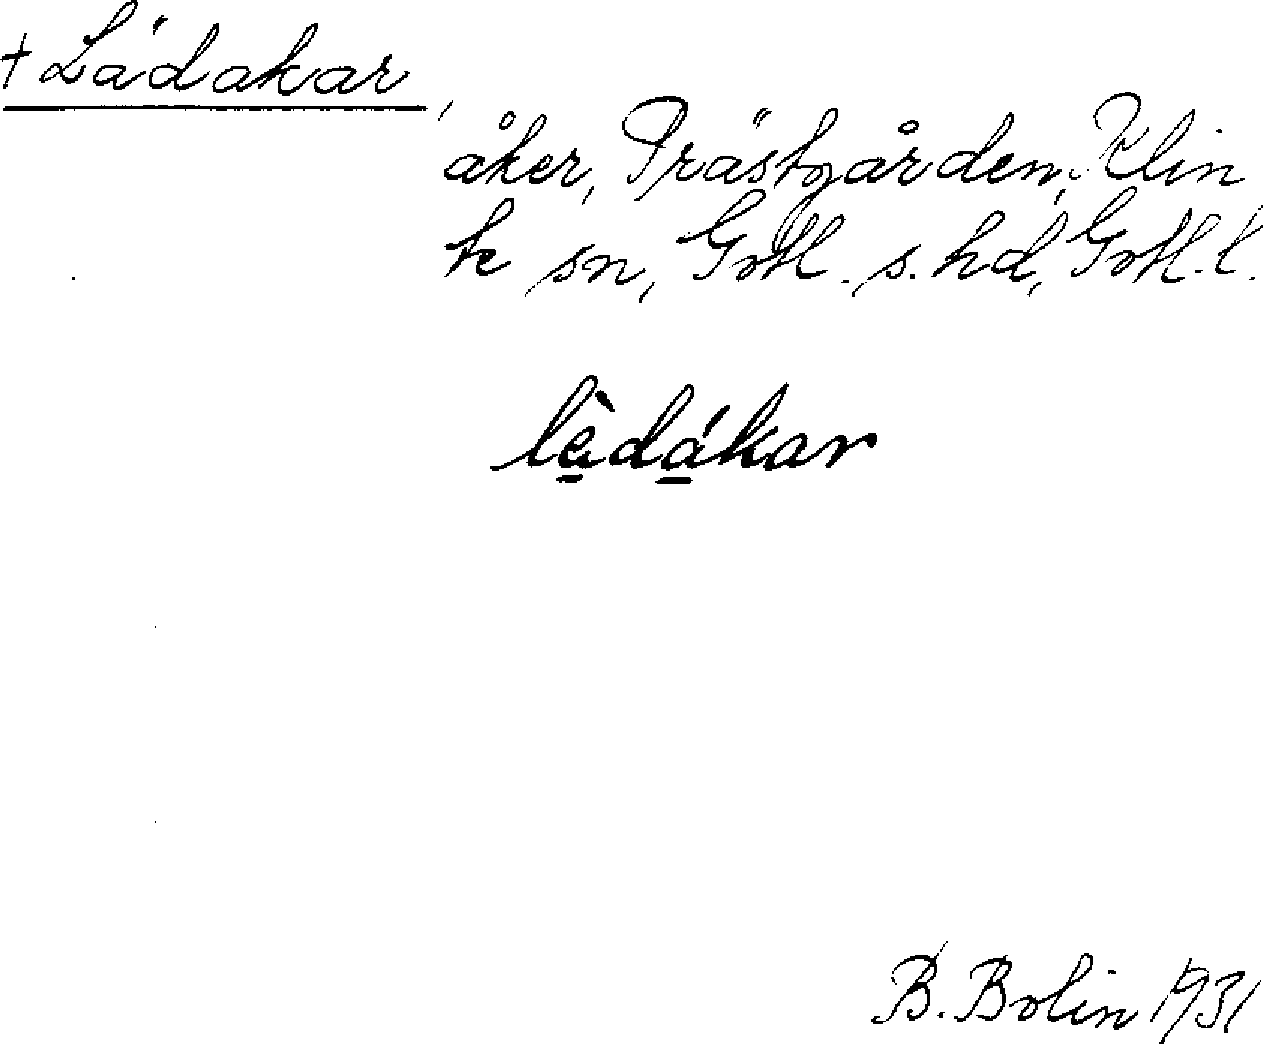 † Lädakar,
åker, Prästgården, Klin
te sn, Gotl. s. hd, Gotl. l.
lèdákar
B. Bolin 1931